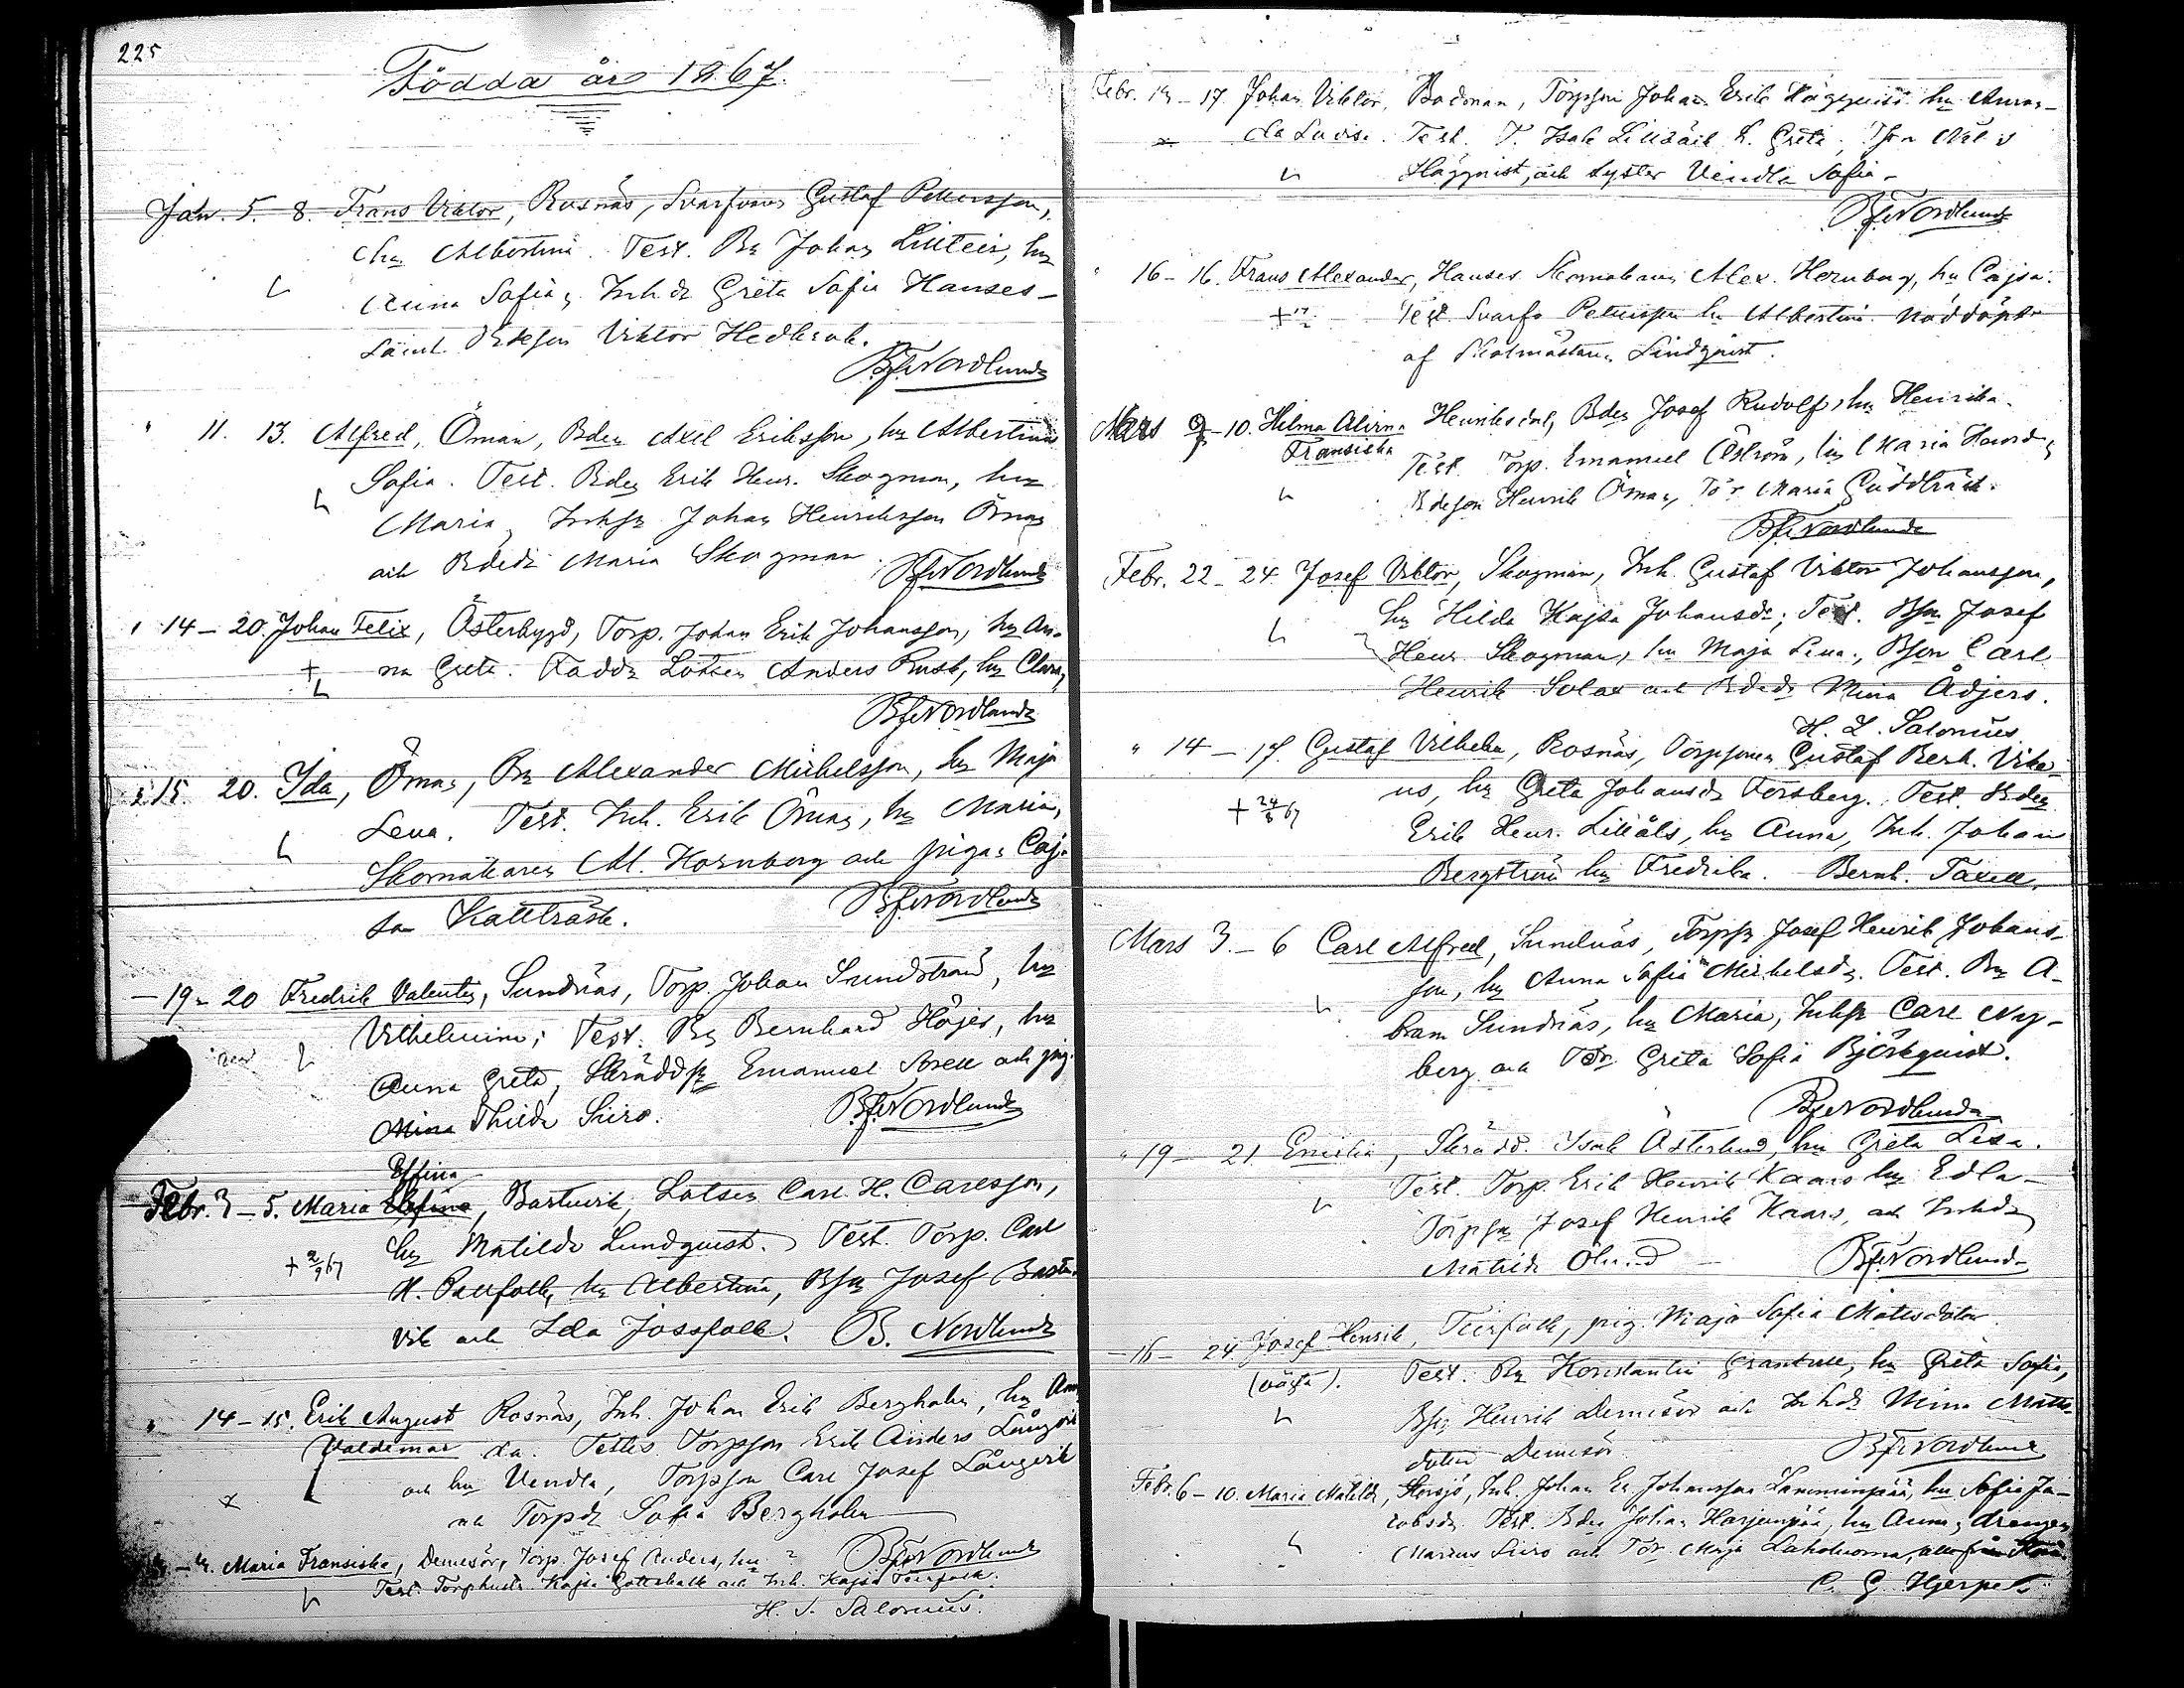 225
Födda år 1867.
Jan. 5. 8. Frans Viktor, Rosnäs, Svarfvaren Gustaf Pettersson,
hu Albertina. Test. Bn Johan Lillteir, hu
Anna Sofia, Inh.dr Greta Sofia Hanses-
Viktor Hedberg.
BfrNordlund
" 11. 13. Alfred, Öman, Bden Axel Eriksson, hu Albertina
Sofia. Test. Bden Erik Henr. Skogman, hu
Maria, Johan Henriksson Öman
och Maria Skogman.
BfrNordlund
" 14 - 20. Johan Felix, Österbygd, Torp. Johan Erik Johansson, hu An-
na Greta. Fadd. Lotsen Anders Rusk, hu Clara,
BfrNordlund
" 15. 20. Ida, Öman, Bn Alexander Mickelsson, hu Maja
Lena. Test. Inh. Erik Öman, hu Maria,
Skomakaren Al. Hornborg och pigan Caj-
sa Kallträsk.
BfrNordlund
- 19 - 20 Fredrik Valentin, Sundnäs, Torp. Johan Sundström, hu
Vilhelmina; Test. Bn Bernhard Höijer, hu
Anna Greta, Emanuel och pig.
Mina Thilda Siiro.
BfrNordlund
Effina
Febr. 3 - 5. Maria, Bastuvik, Lotsen Carl H. Carlsson,
+ 2/9 67 hu Matilda Lundquist. Test. Torp. Carl
H. Paxfolk, hu Albertina, Bsn Josef Bastu-
vik och Ida Jossfolk. B. Nordlund
" 14 - 15. Erik August Rosnäs, Inh. Johan Erik Bergholm, hu Am
Valdemar da. Testes Torpson Erik Anders Långvik
och hu Vendla, Torpson Carl Josef Långvik
och Torpdr Sofia Bergholm
BfrNordlund
Maria Fransiska, Demisör, Torp. Josef Anders, hu ?
Test. Torphustr. Kajsa Gottskalk och Inh. Kajsa Teirfolk.
H. L. Salonius.
Febr. 13 - 17. Johan Viktor, Bodman, Torpson Johan Erik Häggquist hu Aman-
da Lovisa. Test. T. Isak Lillträsk h. Greta,
Häggquist, och syster Vendla Sofia.
BfrNordlund
" 16 - 16. Frans Alexander, Hanses Skomakaren Alex. Hornborg, hu Cajsa.
Test. Svarfv Pettersson hu Albertina. Nöddöpt
af Skolmästaren Lindqvist.
Mars 9 - 10. Hilma Alvina Henriksdal, Bden Josef Rudolf, hu Henrika.
Fransiska Test. Torp. Emanuel Åström, hu Maria
Bdeson Henrik Öman, Tör Maria Guddträsk.
BfrNordlund
Febr. 22 - 24. Josef Viktor, Skogman, Inh. Gustaf Viktor Johansson,
hu Hilda Kajsa Johansdr; Test. Bsn Josef
Henr. Skogman, hu Maja Lena, Bson Carl
Henrik Solax och Bdedr Mina Ådjers.
H. L. Salonius.
" 14 - 17. Gustaf Vilhelm, Rosnäs, Torpsonen Gustaf Berh. Vike-
us, hu Greta Johansdr Forsberg. Test. Bden
Erik Henr. Lillåls, hu Anna, Inh. Johan
Bergström hu Fredrika. Bernh. Taxell.
Mars 3. - 6 Carl Alfred, Sundnäs, Torpsn Josef Henrik Johans-
son, hu Anna Sofia Mickelsdr. Test. Bn A-
bram Sundnäs, hu Maria, Carl Ny-
berg och Tör Greta Sofia Björkquist.
BfrNordlund
" 19 - 21. Emilia, Skrädd. Isak Österlund, hu Greta Lisa.
Test. Torp. Erik Henrik Kaars hu Edla
Torpsn Josef Henrik Kaars, och Inhdr
Matilda Ölund
BfrNordlund
- 16 - 24. Josef Henrik, Teirfolk, pig. Maja Sofia Matsdotter.
(oägta). Test. Bn Konstantin Grankull, hu Greta Sofia,
Bsn Henrik Demisör och Inhdr Mina Matts-
dotter Demisör.
BfrNordlund
Febr. 6 - 10. Maria Matilda, Storsjö, Inh. Johan Er. Johansson Lamminpää, hu Sofia Ja-
cobsdr. Test. Bden Johan Harjunpää, hu Anna, drengen
Marius Siiro och Tör Maja Laholuoma, alla från
C. G. Hjerpe